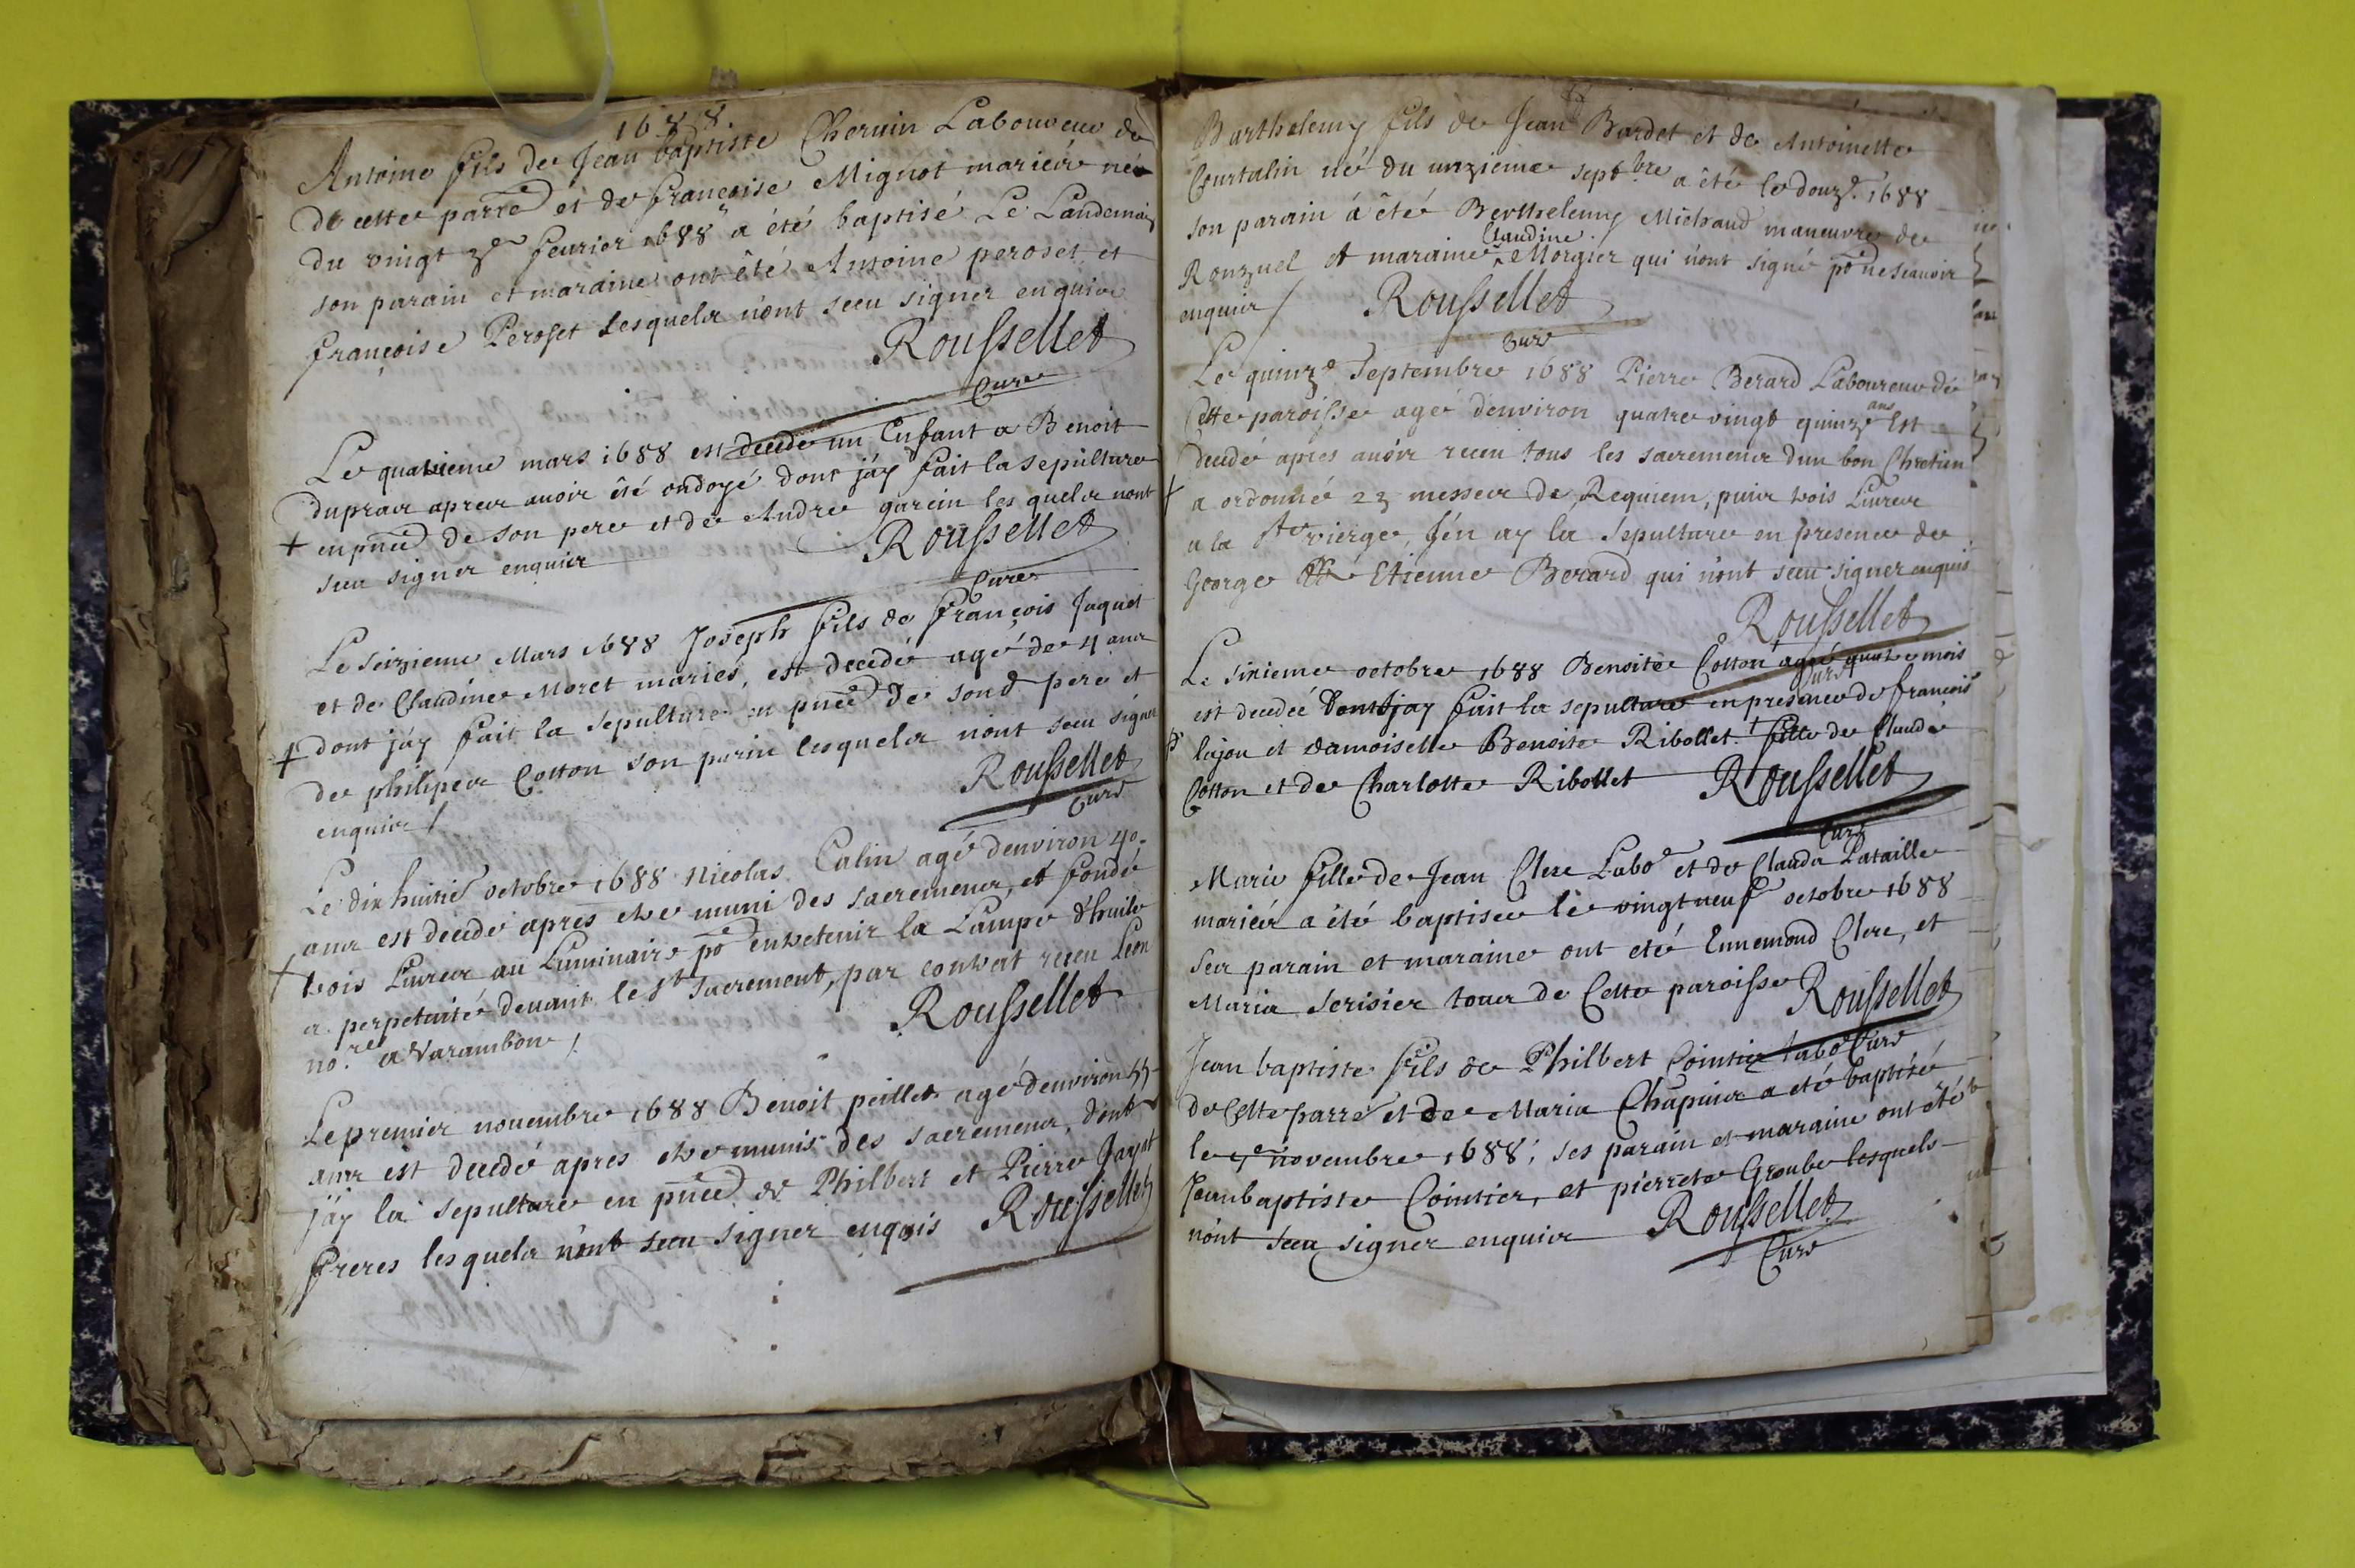 1688.
Antoine fils de Jean baptiste Cheruin Laboureur de
de cette parre et de françoise Mignot mariés né
du vingt 3e feurier 1688 a été baptisé Le Landemain
son parain et maraine ont été Antoine peroset et
françoise Peroset lesquels n'ont sceu signer enquis
Roussellet
Curé
Le quatrieme mars 1688 est decedé un Enfant a Benoit
duprais apres auoir été ondoyé dont j'ay fait la sepulture
+ en pnce de son pere et de Andre garcin les quels nont
sceu signer enquis
Roussellet
Curé
Le seizieme Mars 1688 Joseph fils de François Jaquet
et de Claudine Moret mariés, est decedé agé de 4 ans
+ dont j'ay fait la sepulture en pnce de sond pere et
de philipes Cotton son parin lesquels n'ont sceu signer
enquis /
Roussellet
Curé
Le dix huitie octobre 1688 Nicolas Calin agé denviron 40
ans est decedé apres etre muni des sacremens, et fondé
+ trois Liures au Luminaire po entretenir la Lampe d'huile
a perpetuité deuant le St Sacrement, par contrat receu Leon
nore a Varambon /.
Roussellet
Le premier nouembre 1688 Benoit peillet agé denviron 55
ans est decedé apres etre munis des sacremens, dont
j'ay la sepulture en pnce de Philbert et Pierre Jayet
freres lesquels n'ont sceu signer enquis Roussellet
Barthelemy fils de Jean Bardet et de Antoinette
Courtalin né du unzieme septbre a été le douze 1688
son parain á été Berthelemy Michaud maneuvre de
Claudine
Ronzuel et maraine ^ Morgier qui n'ont signé po ne scauoir
enquis / Roussellet
Curé
Le quinze Septembre 1688 Pierre Berard Laboureur de
Cette paroisse agé denviron quatre vingt quinze ans Est
decedé apres auoir receu tous les sacremens dun bon Chretien
+ a ordonné 23 messes de Requiem, puis trois Liures
a la Ste vierge, J'en ay la Sepulture en presence de
George Etienne Berard qui n'ont sceu signer enquis
Roussellet
Curé
Le sixieme octobre 1688 Benoite Cotton agée quatre mois
est decedée dont jay fait la sepulture en presence de francois
lujon et damoiselle Benoite Ribollet. + fille de Claude
Cotton et de Charlotte Ribollet Roussellet
Curé
Marie fille de Jean Clere Labor et de Clauda Lataille
mariés a été baptisée le vingt neuf octobre 1688
ses parain et maraine ont eté Ennemond Clere, et
Maria Serisier tous de Cette paroisse Roussellet
Curé
Jean baptiste fils de Philbert Cointier labor
de Cette parre et de Maria Chapuis a eté baptisé
le 7e novembre 1688; ses parain et maraine ont été
Jeanbaptiste Cointier, et pierrete Groube lesquels
n'ont sceu signer enquis Roussellet
Curé